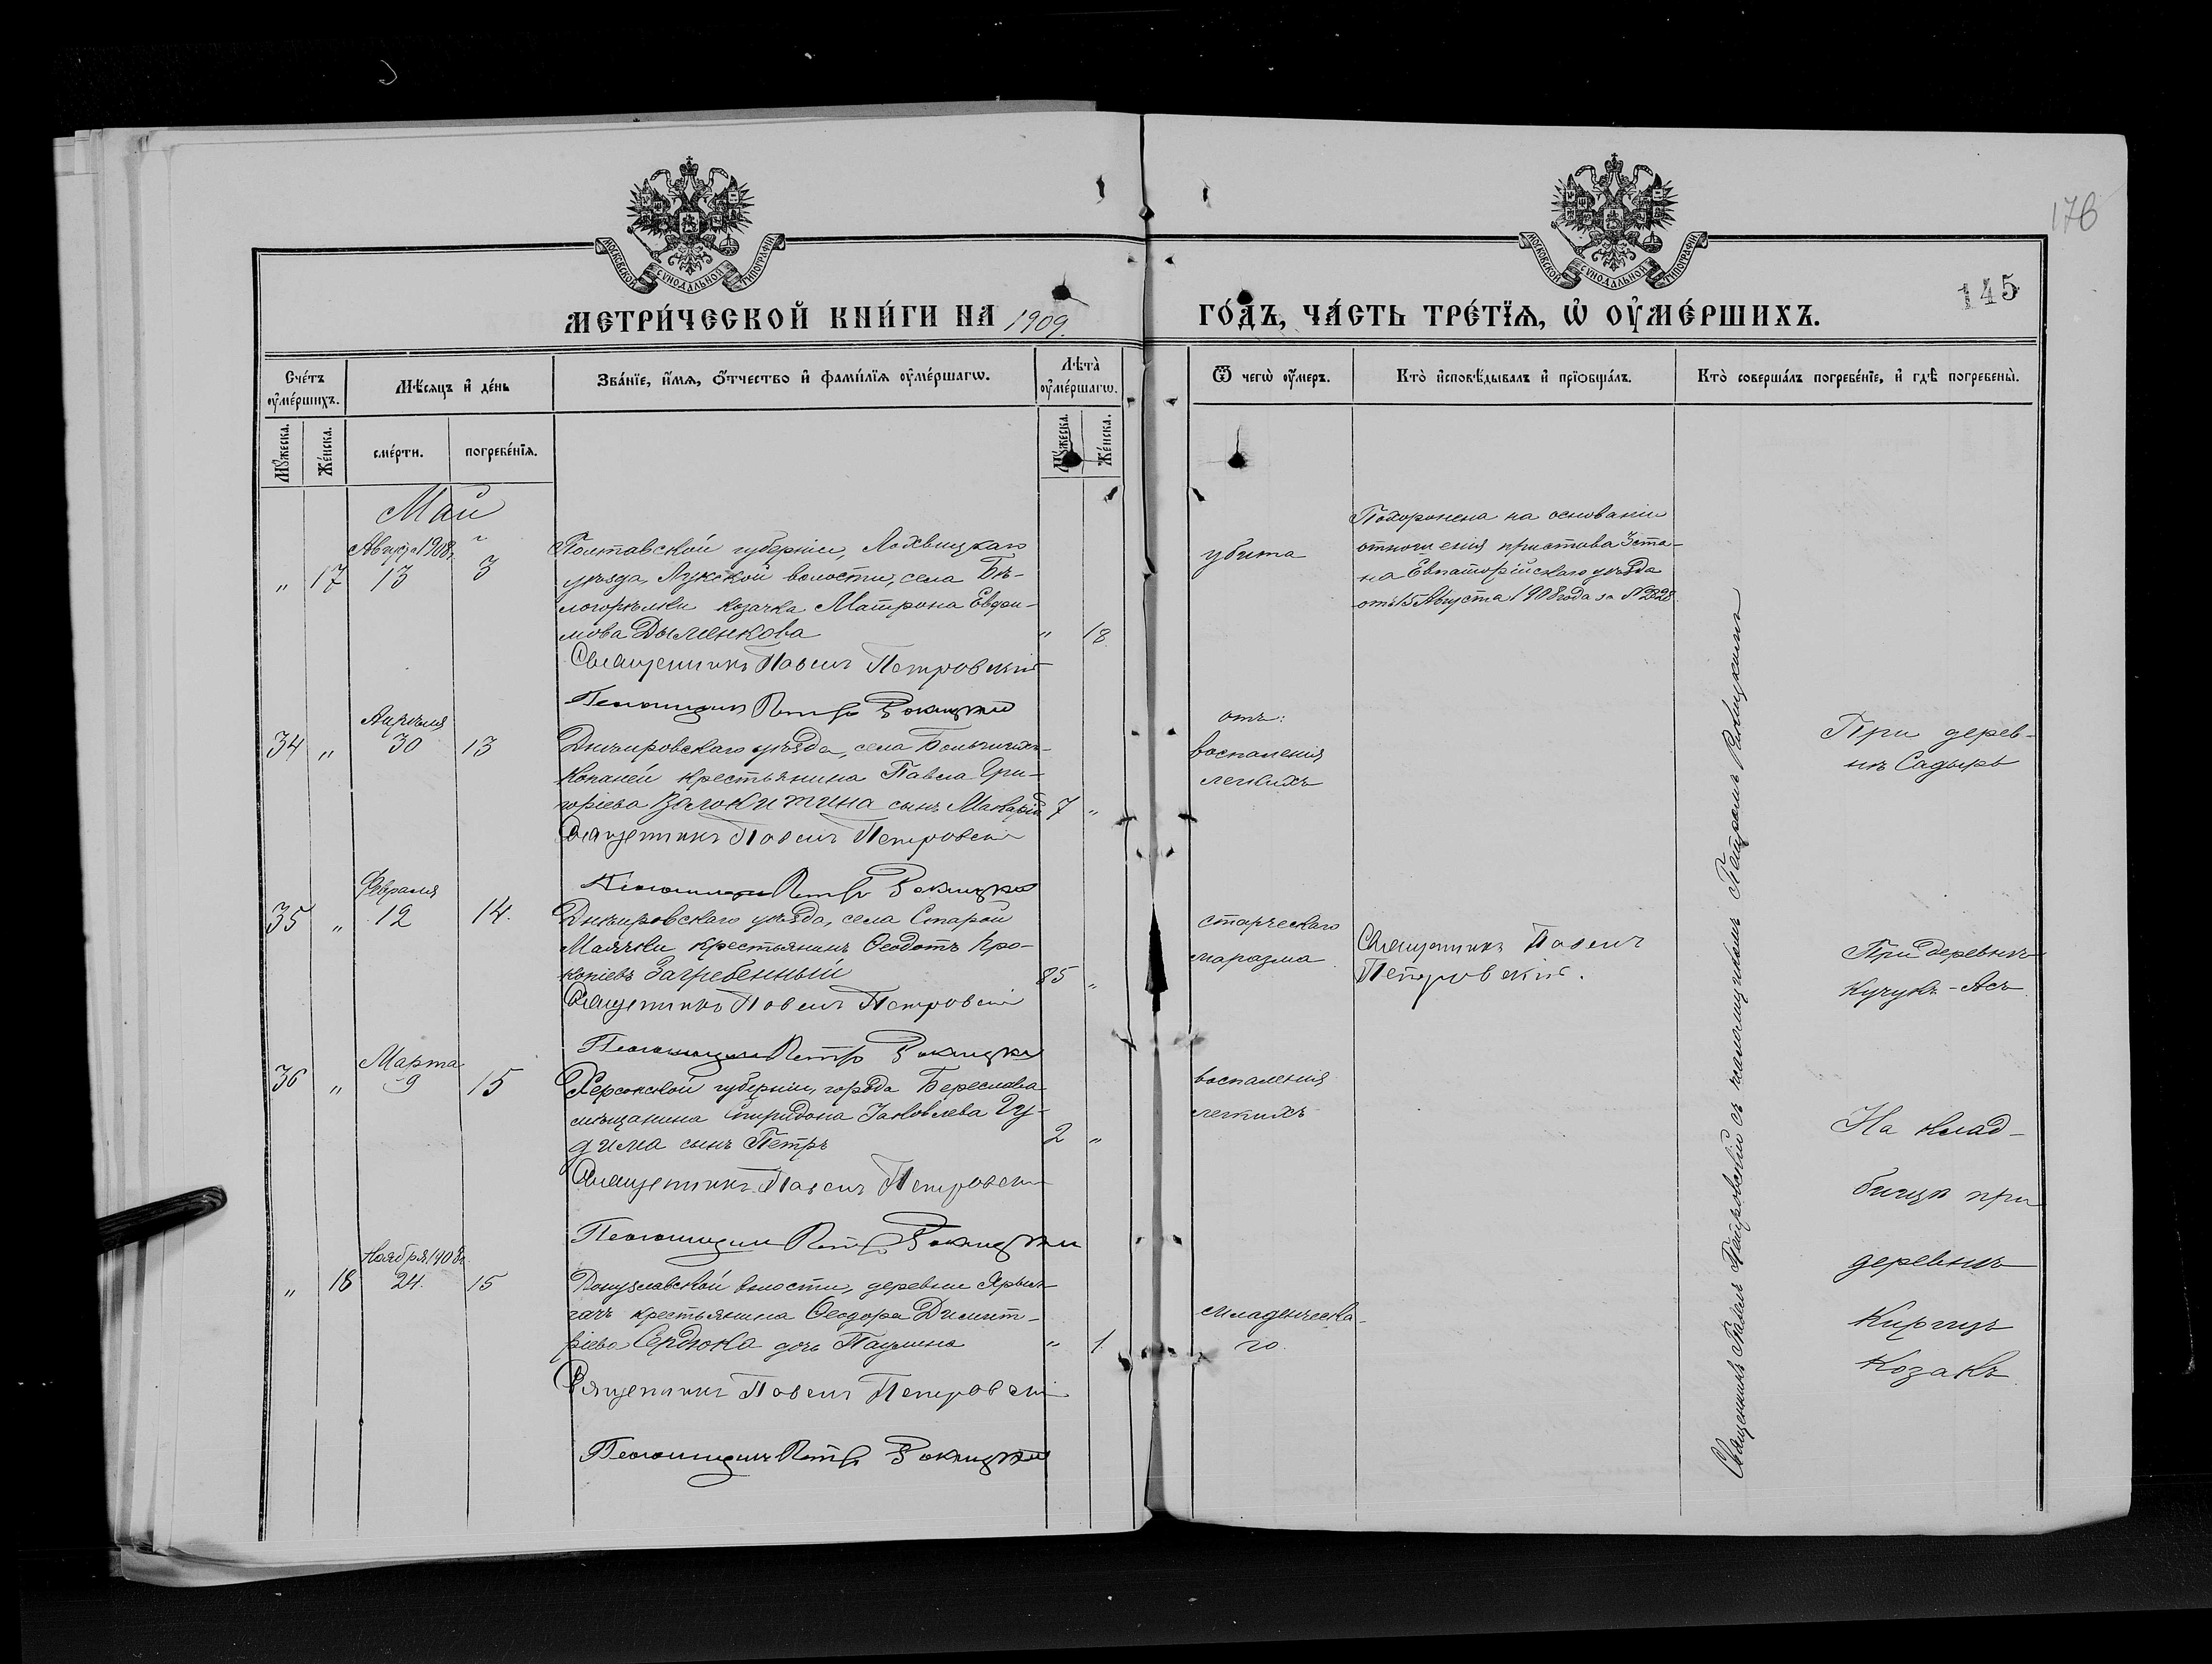 176
145
МОСКОВСКОЙ СѴНОДАЛЬНОЙ ТИПОГРАФІИ
МОСКОВСКОЙ СѴНОДАЛЬНОЙ ТИПОГРАФІИ
МЕТРИ́ЧЕСКОЙ КНИ́ГИ НА 1909. ГО́ДЪ, ЧА́СТЬ ТРЕ́ТЇѦ, Ѡ҆ ОУ҆МЕ́РШИХЪ.
Сче́тъ оу҆ме́ршихъ.
Мѣ́сяцъ и҆ де́нь
Зва́нїе, и҆́мѧ, ѻ҆́тчество и҆ фами́лїѧ оу҆ме́ршагѡ.
Лѣта̀ оу҆ме́ршагѡ.
Ѿ чегѡ̀ оу҆́меръ.
Кто̀ и҆сповѣ́дывалъ и҆ прїѡбща́лъ.
Кто̀ соверша́лъ погребе́нїе, и҆ гдѣ̀ погребены̀.
Мꙋ́жеска.
Же́нска.
сме́рти.
погребе́нїѧ.
Мꙋ́жеска.
Же́нска.
Май
Августа 1908 г.
" 17 13 3
Полтавской губерніи, Лохвицкаго
уѣзда, Лукской волости, села Бѣ-
логорѣлки козачка Матрона Евфи-
мова Дыменкова " 18
Священникъ Павелъ Петровскій
Псаломщикъ Петръ Рокицкій
убита
Похоронена на основаніи
отношенія пристава 3 ста-
на Евпаторійскаго уѣзда
отъ 15 Августа 1908 года за №
Апрѣля
34 " 30 13
Днѣпровскаго уѣзда, села Большихъ-
Копаней крестьянина Павла Гри-
горіева Валокитина сынъ Макарій 7 "
Священникъ Павелъ Петровскій
Псаломщикъ Петръ Рокицкій
отъ:
воспаленія
легкихъ
При дерев-
нѣ Садыръ
Февраля
35 " 12 14.
Днѣпровскаго уѣзда, села Старой
Маячки крестьянинъ Ѳеодотъ Про-
копіевъ Загребенный 85 "
Священникъ Павелъ Петровскій
Псаломщикъ Петръ Рокицкій
старческаго
маразма
Священникъ Павелъ
Петровскій.
При деревнѣ
Кучукъ-Асъ
Марта
36 " 9 15
Херсонской губерніи, города Береслава
мѣщанина Спиридона Іаковлева Гу-
дима сынъ Петръ 2 "
Священникъ Павелъ Петровскій
Псаломщикъ Петръ Рокицкій
воспаленія
легкихъ
На клад-
бищѣ при
деревнѣ
Киргизъ
Козакъ
Ноября 1908 г.
" 18 24. 15
Донузлавской волости, деревни Ярыл-
гачъ крестьянина Ѳеодора Димит-
ріева Сердюка дочь Паулина " 1.
Священникъ Павелъ Петровскій
Псаломщикъ Петръ Рокицкій
младенческа-
го.
Священникъ Павелъ Петровскій съ псаломщикомъ Петромъ Рокицкимъ